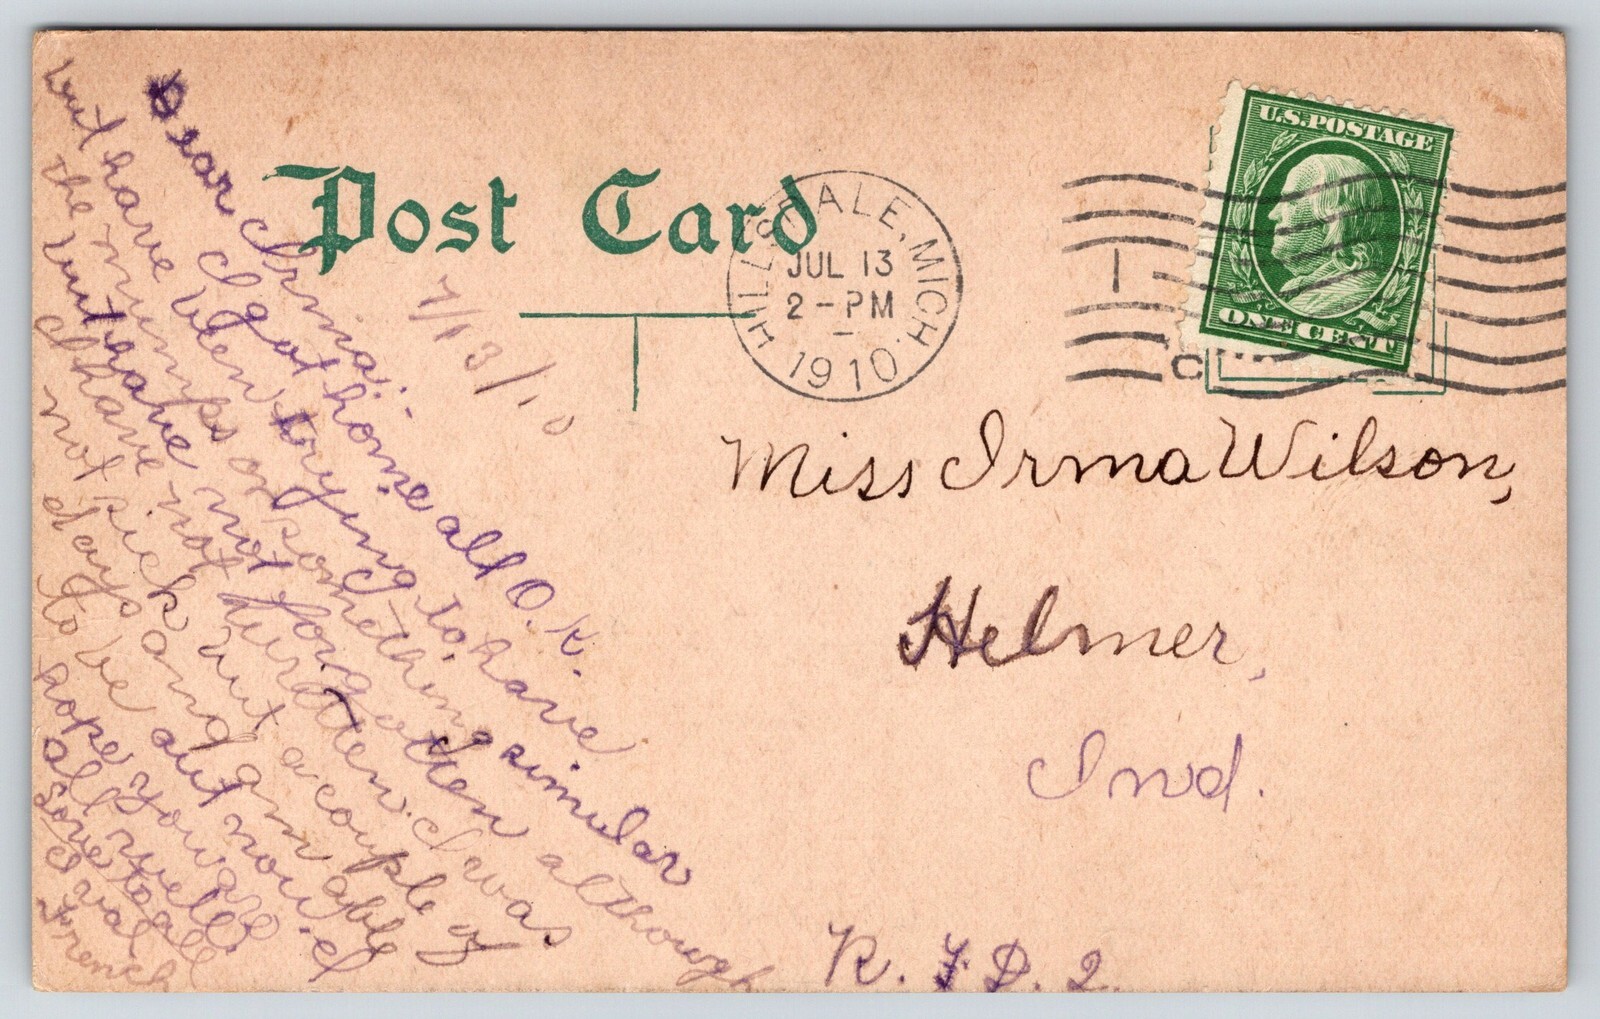 Post Card
U.S. POSTAGE
ONE CENT
HILLSDALE, MICH.
JUL 13
2-PM
1910
1
C
7/13/10
Dear Irma:-
I got home all O.K.
but have been trying to have
the mumps or something simular
but have not forgotten although
I have not written. I was
not sick but a couple of
days and am able
to be out now. I
hope you are
all well.
Love to all
French
Miss Irma Wilson,
Helmer,
Ind.
R. F. D. 2.